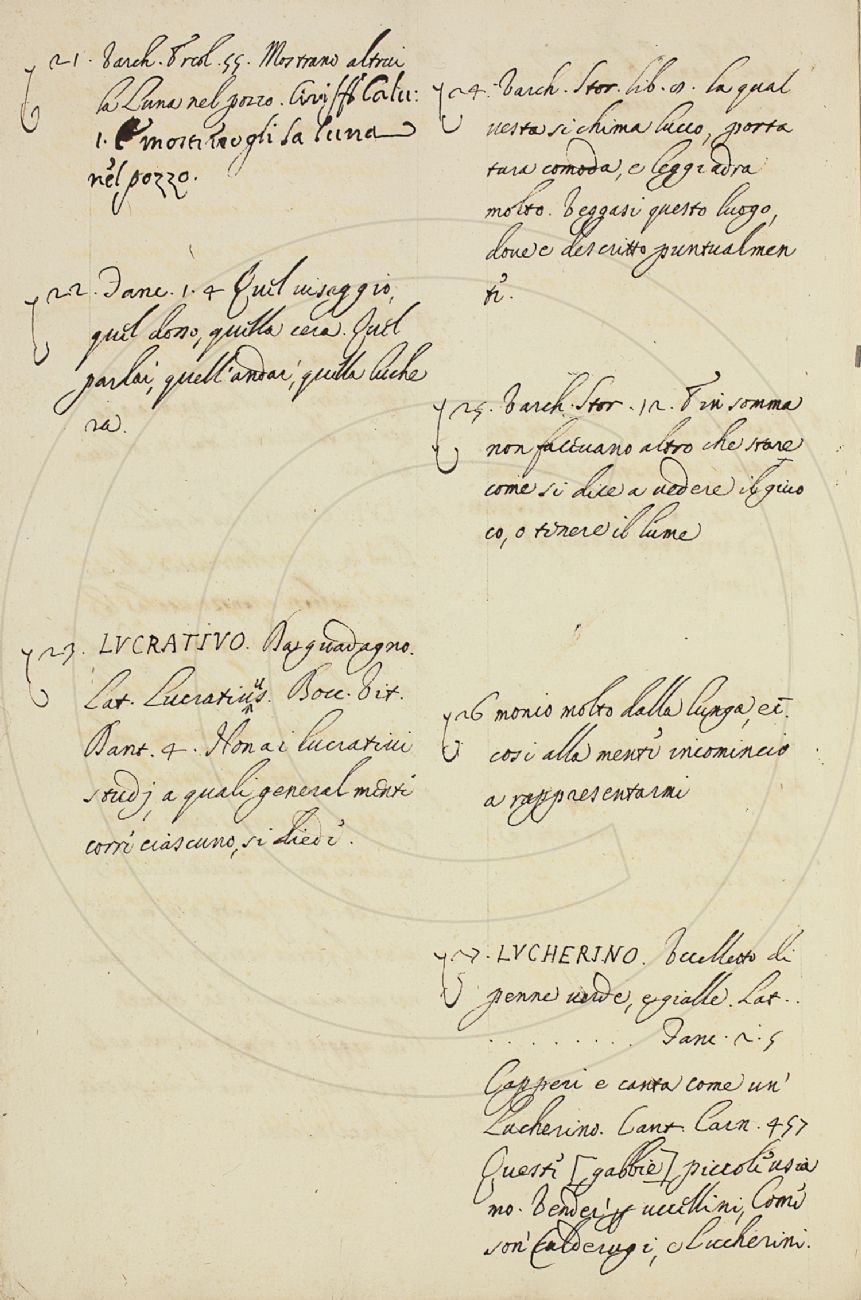 21. Varch. Ercol. 55. Mostrano altrui
la Luna nel pozzo. Ciriff Calu:
1. E mostravagli la luna
nel pozzo.
22. Tanc. 1. 4 Quel visaggio,
quel dosso, quella cera. Quel
parlar, quell'andar, quella luche
ra.
23. LVCRATIVO. Da guadagno.
Lat. Lucrativus. Bocc. Vit.
Dant. 4. Non a i lucrativi
studj, a quali generalmente
corre ciascuno, si diede.
24. Varch. Stor. lib. 9. la qual
vesta si chima lucco, porta
tura comoda, e leggiadra
molto. Veggasi questo luogo,
dove e descritto puntualmen
te.
25. Varch. Stor. 12. E in somma
non facevano altro che stare
come si dice a vedere il giuo
co, o tenere il lume
26 monio molto dalla lunga, et
così alla mente incominciò
a rappresentarmi
27. LVCHERINO. Vccelletto di
penne verde, e gialle. Lat. .
. . . . . . . . . Tanc. 2. 5
Capperi e canta come un'
Lucherino. Cant. Carn. 457
Queste [gabbie] piccole usia
mo. Vender p uccellini, Come
son' Calderugi, e Lucherini.